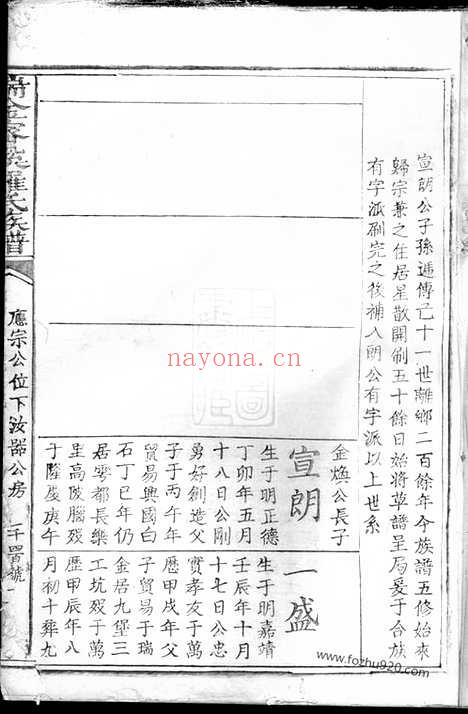 宣朗公子孫遞傳已十一世離鄉二百餘年今族譜五修始來
歸宗兼之住居星散開刷五十餘日始將草譜呈局爰于合族
有字派刷完之後補入朗公有字派以上世系
金煥公長子
宣朗
生于明正德
丁卯年五月
十八日公剛
勇好創造父
子于丙午年
貿易興國白
石丁巳年仍
居雩都長樂
呈高陂腦歿
于隆慶庚午
一盛
生于明嘉靖
壬辰年十月
十七日公忠
實孝友于萬
歷甲戌年父
子貿易于瑞
金居九堡三
工坑歿于萬
歷甲辰年八
月初十葬九
羅氏族譜
應宗公位下汝器公房
nayona.cn
www.fozhu920.com